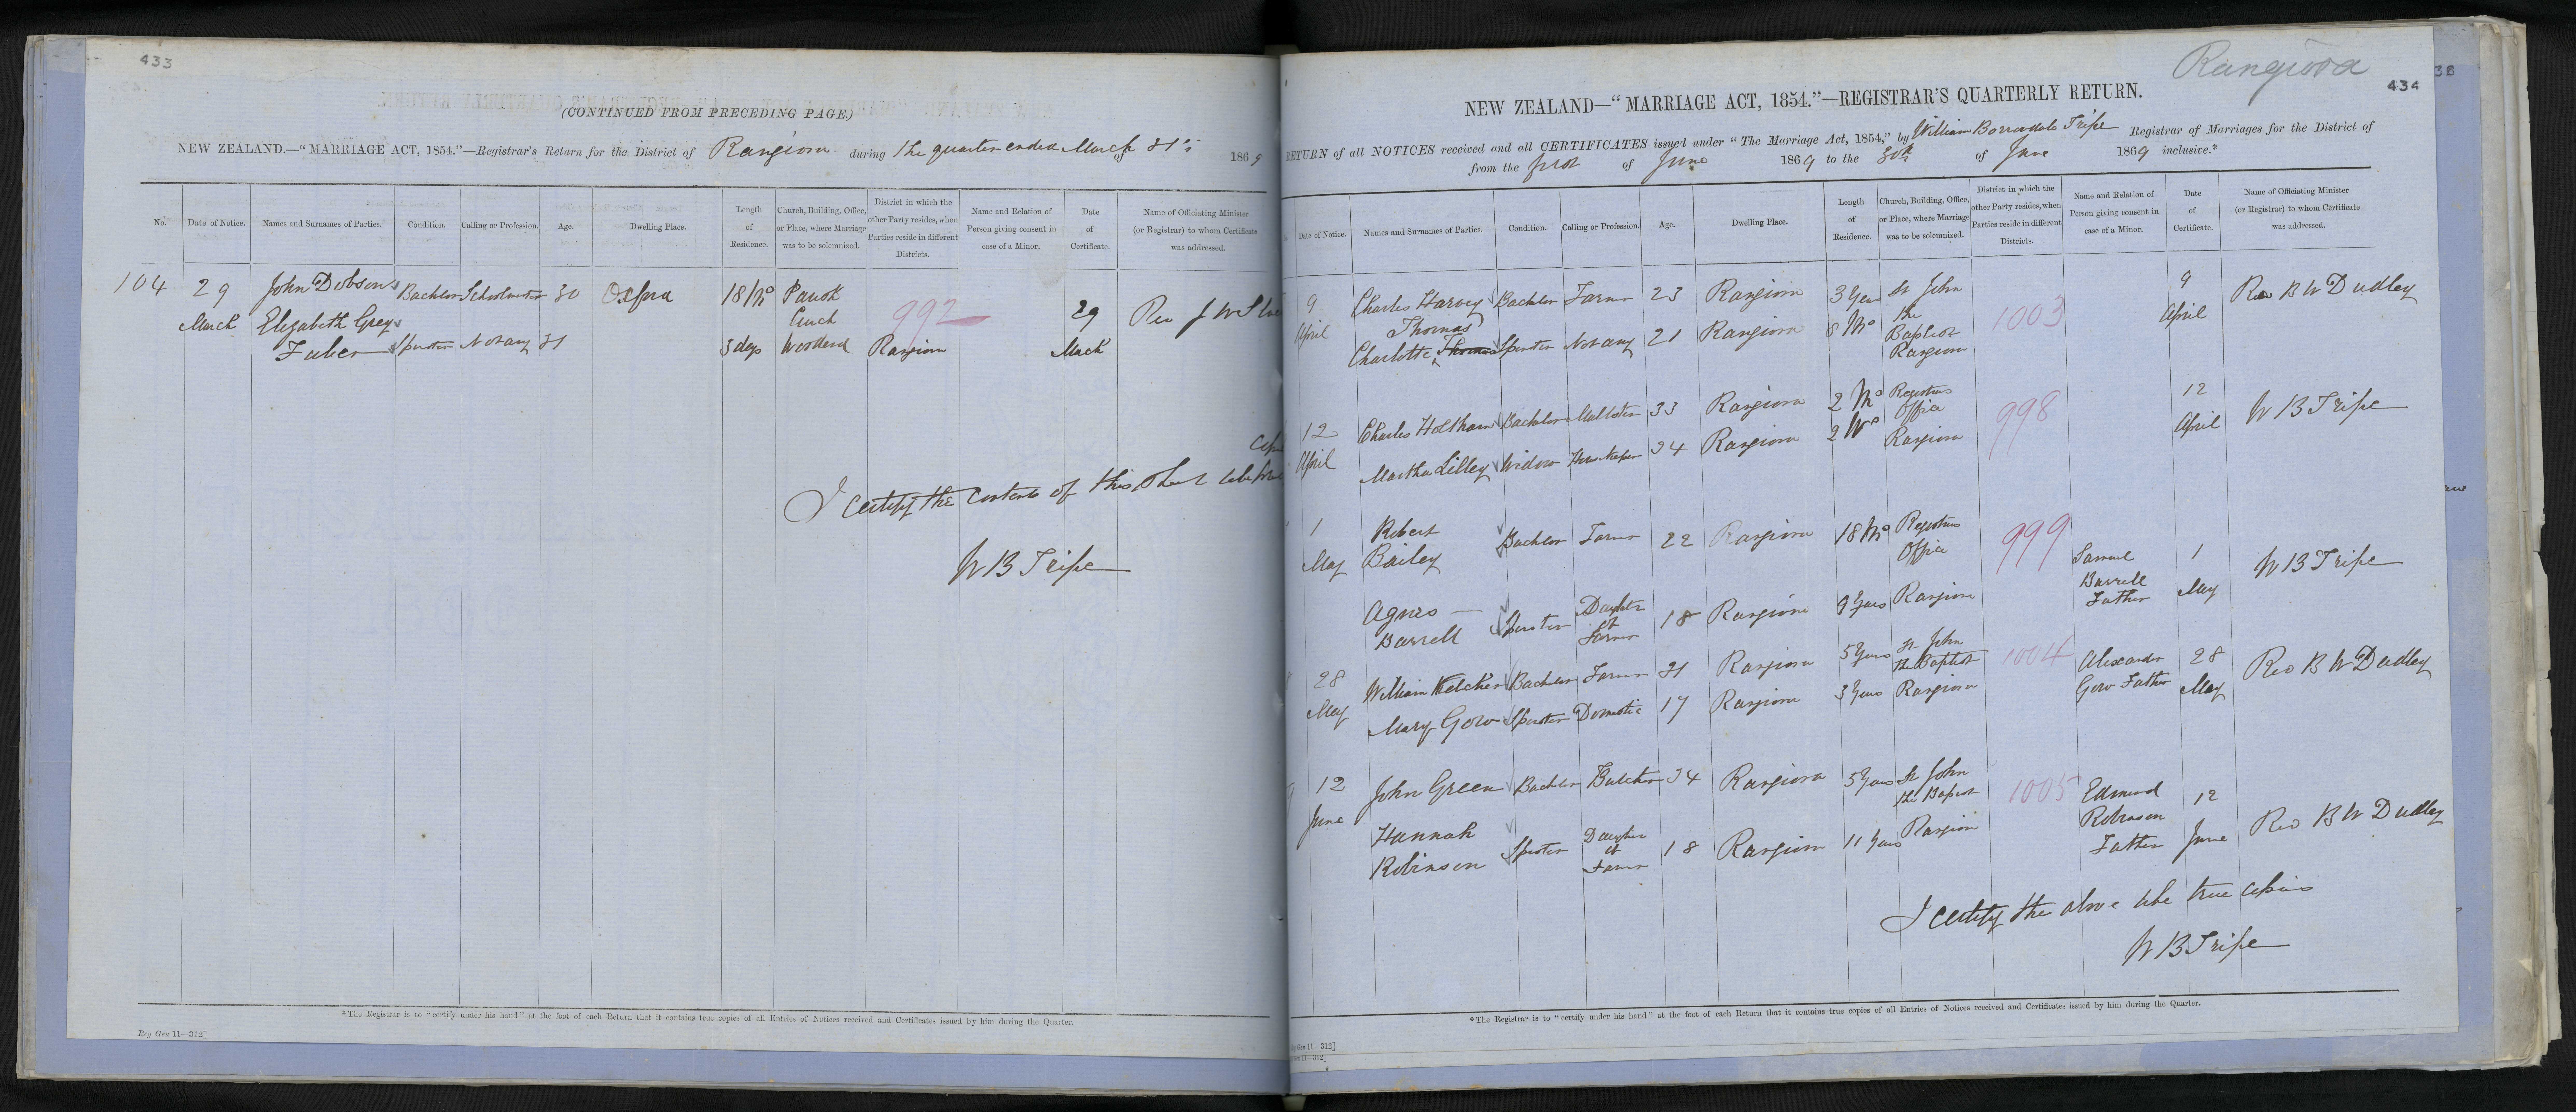 433
(CONTINUED FROM PRECEDING PAGE.)
NEW ZEALAND.—"MARRIAGE ACT, 1854."—Registrar's Return for the District of Rangiora during the quarter ended March 31st of 1869
No. Date of Notice. Names and Surnames of Parties. Condition. Calling or Profession. Age. Dwelling Place. Length of Residence. Church, Building, Office, or Place, where Marriage was to be solemnized. District in which the other Party resides, when Parties reside in different Districts. Name and Relation of Person giving consent in case of a Minor. Date of Certificate. Name of Officiating Minister (or Registrar) to whom Certificate was addressed.
104 29 March John Dobson Bachelor Schoolmaster 30 Oxford 18 Mo Church 992 29 March Rev J W
Elizabeth Grey Faber Spinster Not any 31 3 days Woodend Rangiora
I certify the contents of this sheet
W B Tripe
*The Registrar is to "certify under his hand" at the foot of each Return that it contains true copies of all Entries of Notices received and Certificates issued by him during the Quarter.
Reg Gen 11—312]
Rangiora
38
434
NEW ZEALAND—"MARRIAGE ACT, 1854."—REGISTRAR'S QUARTERLY RETURN.
RETURN of all NOTICES received and all CERTIFICATES issued under "The Marriage Act, 1854," by William Borradale Tripe Registrar of Marriages for the District of
from the first of June 1869 to the 30th of June 1869 inclusive.*
Date of Notice. Names and Surnames of Parties. Condition. Calling or Profession. Age. Dwelling Place. Length of Residence. Church, Building, Office, or Place, where Marriage was to be solemnized. District in which the other Party resides, when Parties reside in different Districts. Name and Relation of Person giving consent in case of a Minor. Date of Certificate. Name of Officiating Minister (or Registrar) to whom Certificate was addressed.
9 April Charles Harvey Bachelor Farmer 23 Rangiora 3 Years St John the Baptist Rangiora 1003 9 April Rev B W Dudley
Charlotte Thomas Spinster Not any 21 Rangiora 8 Mo
12 April Charles Holtham Bachelor 33 Rangiora 2 Mo Registrars Office Rangiora 998 12 April W B Tripe
Martha Lilley Widow Housekeeper 34 Rangiora 2 Mo
1 May Robert Bailey Bachelor Farmer 22 Rangiora 18 Mo Registrars Office Rangiora 999 Samuel Barrell Father 1 May W B Tripe
Agnes Barrell Spinster Daughter of Farmer 18 Rangiora 9 Years
28 May William Kelcher Bachelor Farmer 31 Rangiora 5 Years St John the Baptist Rangiora 1004 Alexander Gow Father 28 May Rev B W Dudley
Mary Gow Spinster Domestic 17 Rangiora 3 Years
12 June John Green Bachelor Butcher 34 Rangiora 5 Years St John the Baptist Rangiora 1005 Edmund Robinson Father 12 June Rev B W Dudley
Hannah Robinson Spinster Daughter of Farmer 18 Rangiora 11 Years
I certify the above to be true copies
W B Tripe
*The Registrar is to "certify under his hand" at the foot of each Return that it contains true copies of all Entries of Notices received and Certificates issued by him during the Quarter.
Gen 11—312]
11—312]